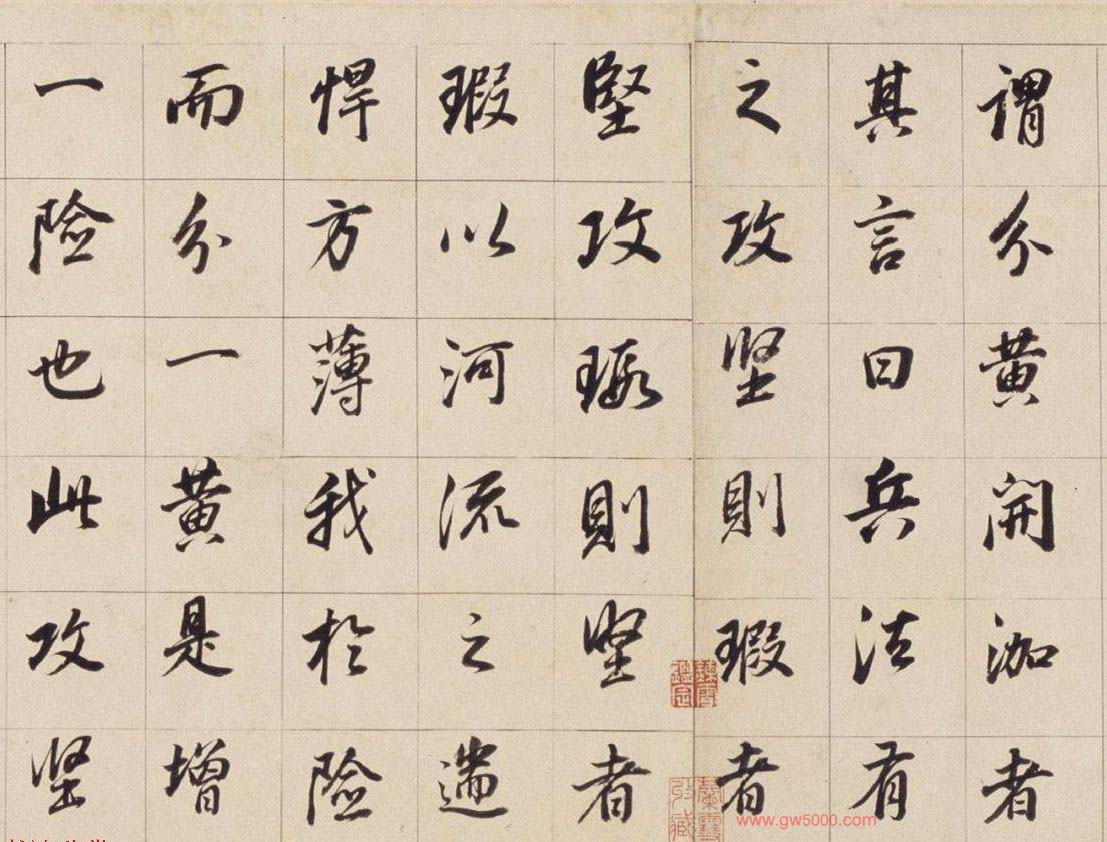 謂分黄開泇者
其言曰兵法有
之攻堅則瑕者
堅攻瑕則堅者
瑕以河流之遄
悍方薄我於險
而分一黄是增
一險也此攻堅
www.gw5000.com